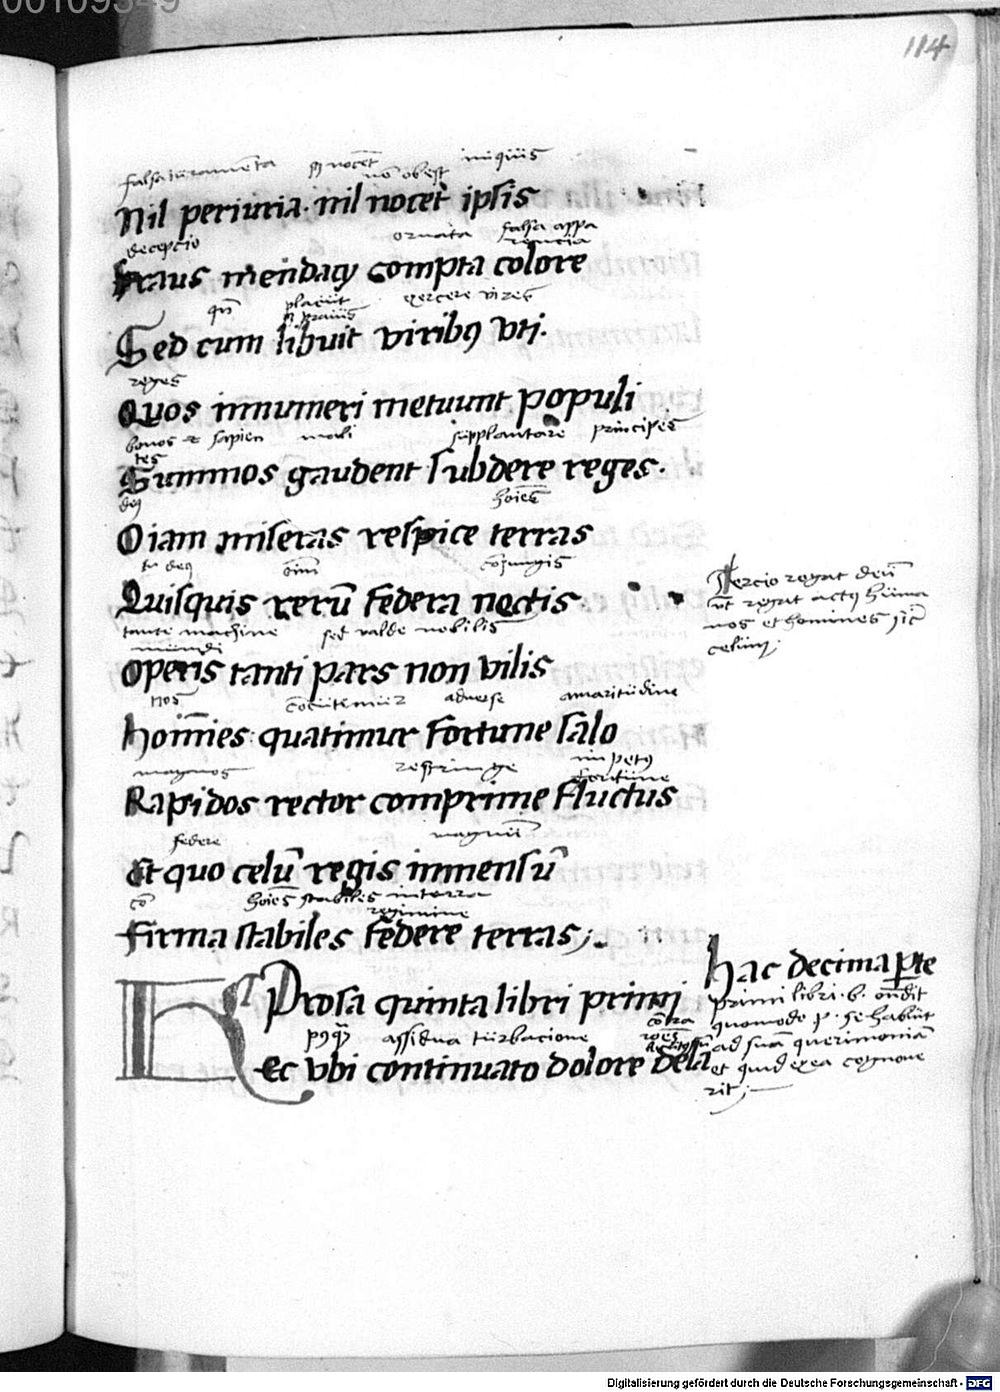 00109349
114
falsa iuramēta nō nocet iniquis
nō obest
Nil periuria. nil nocet ipsis
decepcio ornata falsa appa
rencia
fraus mendacy compta colore
qn̄ placuit exercere vires
Sed cum libuit viribꝯ vti.
reges
Quos innumeri metuunt populi
bonos et sapien mali supplantare principes
tes
Summos gaudent subdere reges.
deꝯ hoīes
O iam miseras respice terras
tu deꝯ oīm cōiungis
Quisquis rerū federa nectis
tante machine sed valde nobilis
mundi
operis tanti pars non vilis
nos adverse amaritudine
hoīnes quatimur fortune salo
magnos restringe impetꝯ
fortune
Rapidos rector comprime fluctus
federe magnū
Et quo celū regis inmensū
hoīes stabiles in terra
regimine
firma stabiles federe terras;
Tercio rogat deū
vt regat actꝯ huma
nos et homines sic
celum.
Prosa quinta libri primi
assidua turbacione cōtra
HEc vbi continuato dolore dela
hac decima pte
primi libri. b. ondit
quomodo p. se habuit
ad suā querimoniā
et quid ex ea cognoue
rit;
Digitalisierung gefördert durch die Deutsche Forschungsgemeinschaft - DFG